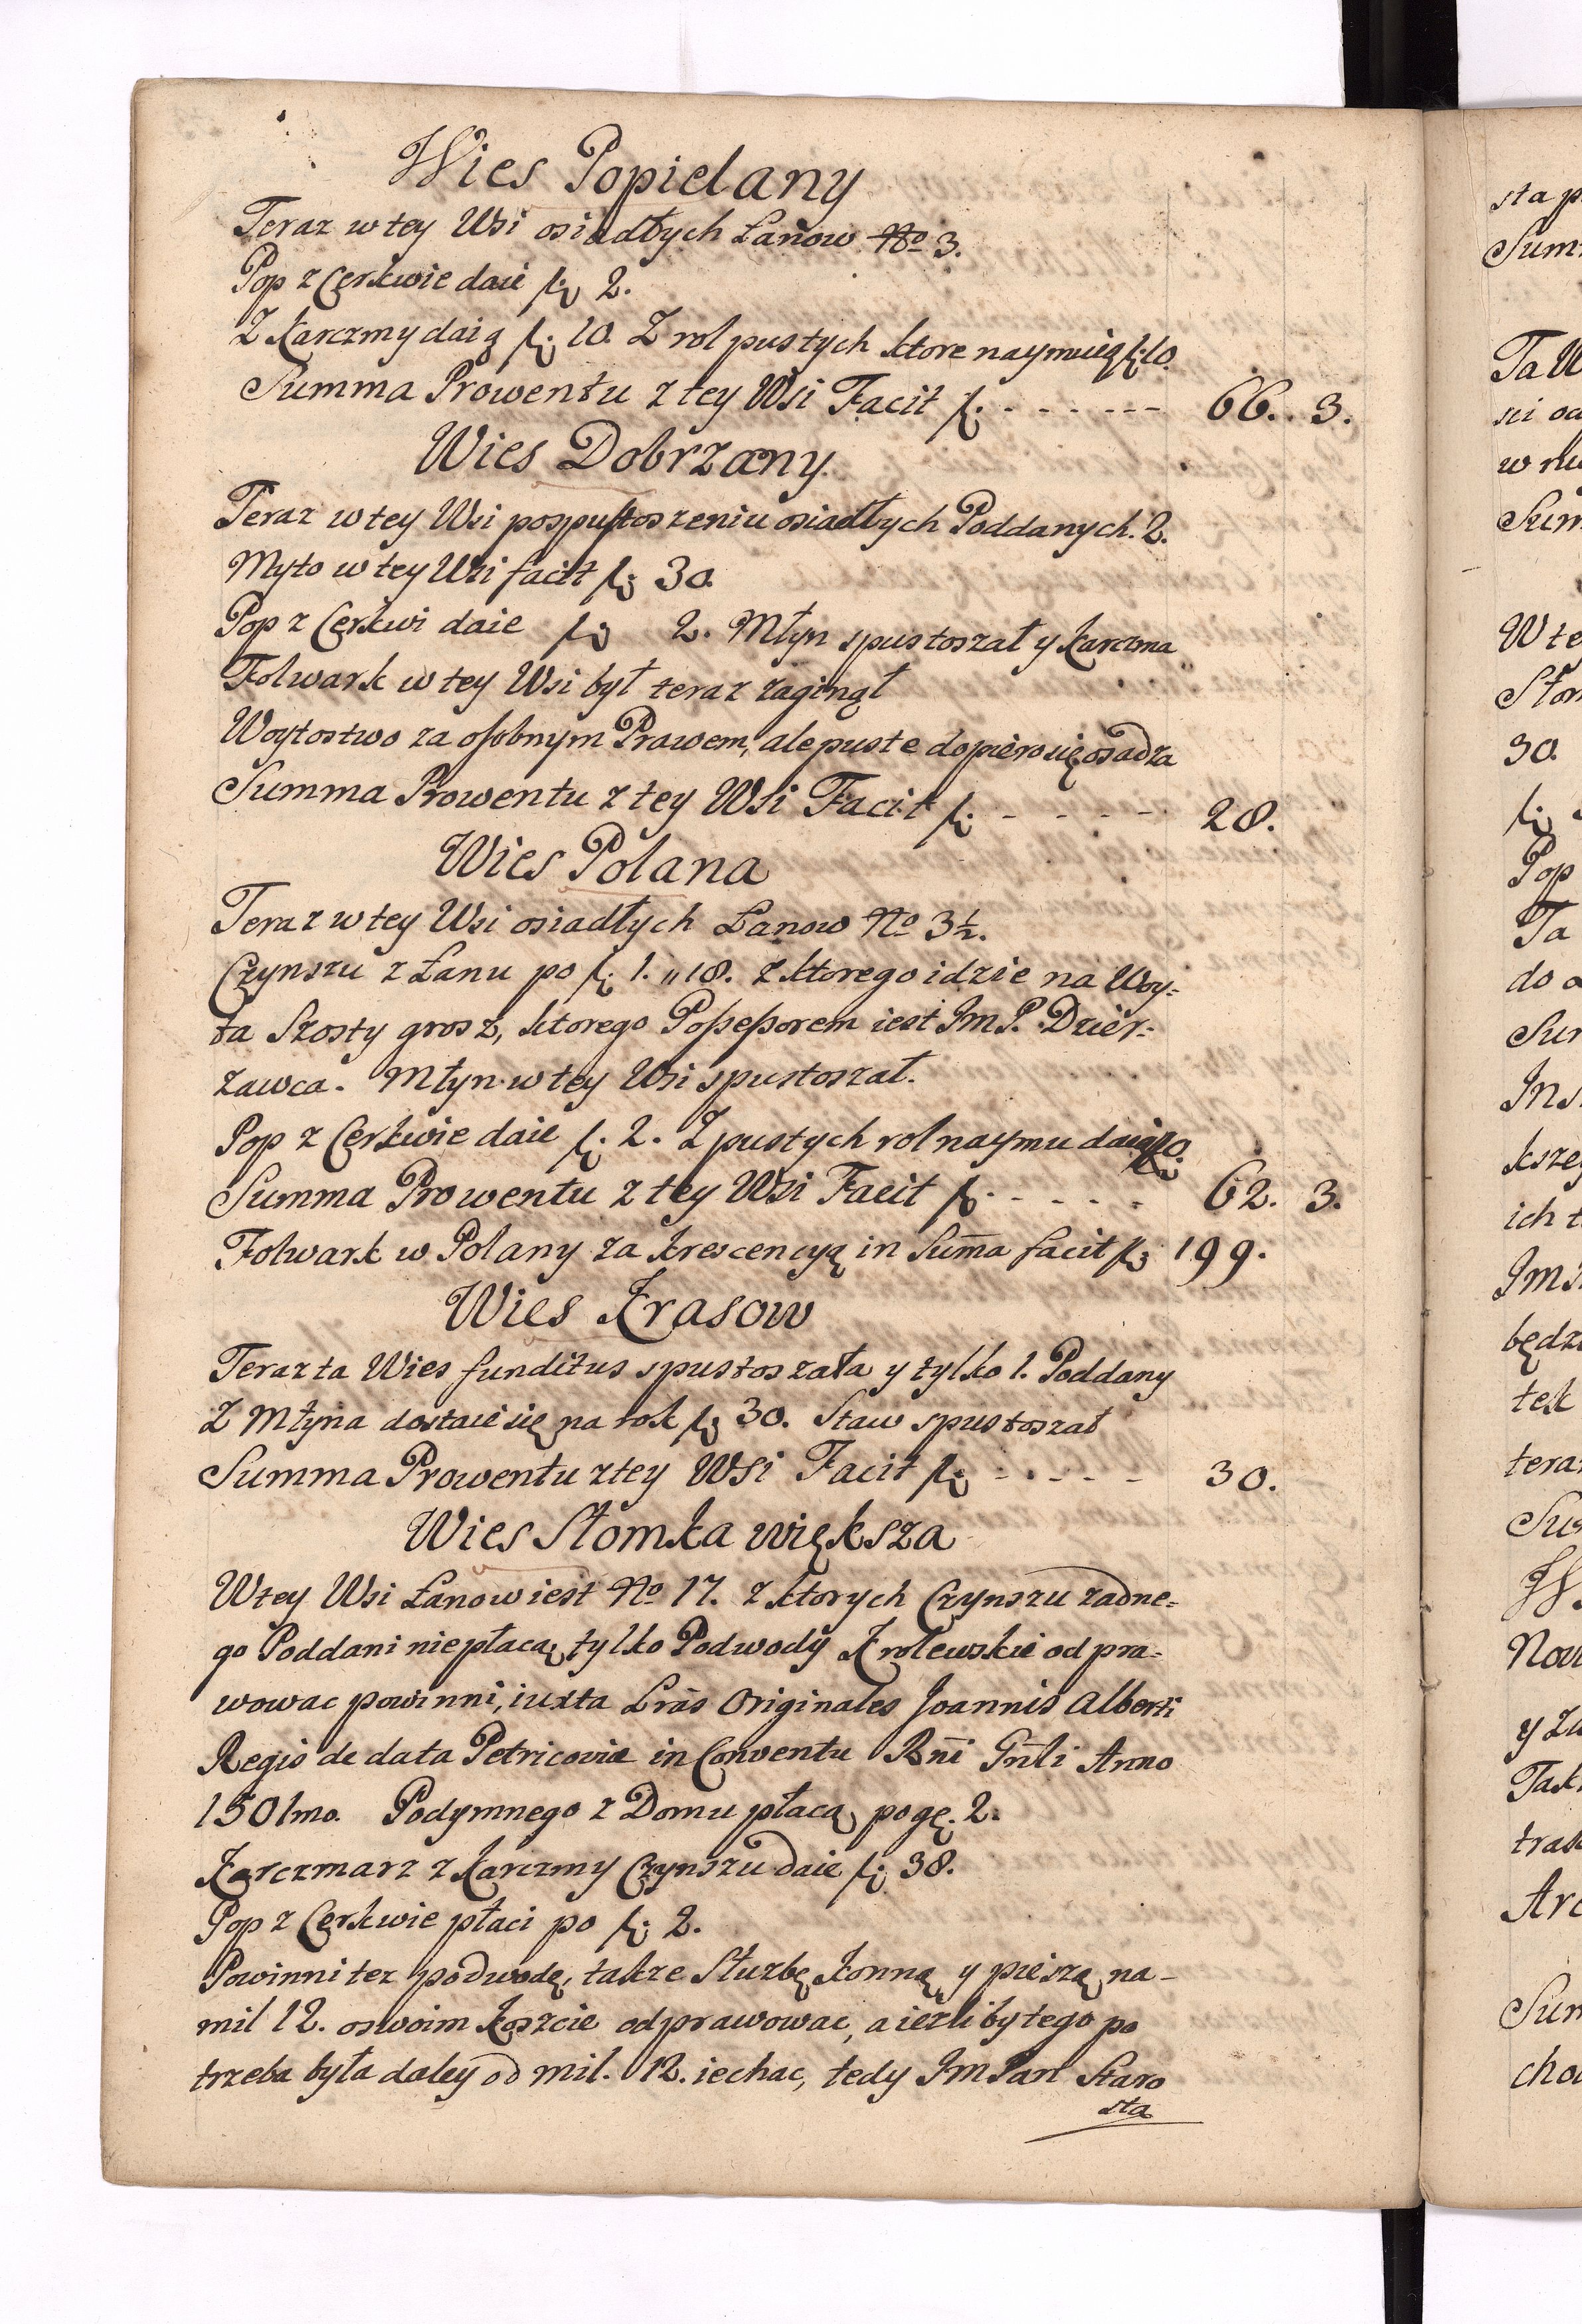 Wies Popielany
Teraz w tey Wsi osiadłych Łanow No 3.
Pop z Cerkwie daie fl: 2.
Z Karczmy daią fl: 10. Z rol pustych ktore naymuią fl: 10.
Summa Prowentu z tey Wsi Facit fl: - - - - - - - 66. 3.
Wies Dobrzany.
Teraz w tey Wsi po spustoszeniu osiadłych Poddanych. 2.
Myto w tey Wsi facit fl: 30.
Pop z Cerkwi daie fl: 2. Młyn spustoszał y karczma
Folwark w tey Wsi był teraz zaginął
Woytostwo za osobnym Prawem, ale puste dopiero się osadza
Summa Prowentu z tey Wsi Facit fl: - - - - - 28.
Wies Polana
Teraz w tey Wsi osiadłych Łanow No 3½.
Czynszu z Łanu po fl: 1. „ 18. z ktorego idzie na Woy=
ta Szosty grosz, ktorego Possessorem iest Im P. Dzier=
zawca. Młyn w tey Wsi spustoszał.
Pop z Cerkwie daie fl: 2. Z pustych rol naymu daią
Summa Prowentu z tey Wsi Facit fl: - - - - - 62. 3.
Folwark w Polany za krescencyą in Sum̃a facit fl: 199.
Wies Krasow
Teraz ta Wies funditus spustoszała y tylko 1. Poddany
Z Młyna dostaie się na rok fl: 30. Staw spustoszał
Summa Prowentu z tey Wsi Facit fl: - - - - - 30.
Wies Słomka większa
W tey Wsi Łanow iest No 17. z ktorych Czynszu zadne=
go Poddani nie płacą, tylko Podwody Krolewskie odpra=
wowac powinni, iuxta Lrãs Originales Joannis Alberti
Regis de data Petricoviæ in Conventu Rñi Gñli Anno
1501mo. Podymnego z Domu płacą po gę: 2.
Karczmarz z Karczmy Czynszu daie fl: 38.
Pop z Cerkwie płaci po fl: 2.
Powinni tez podwodę, takze Słuzbę konną y pieszą na-
mil 12. o swoim koszcie odprawowac, a iezliby tego po
trzeba była daley od mil. 12. iechac, tedy Im Pan Staro
sta
sta p
Sum
Ta W
sci od
w nu
Sum
W te
Słom
30.
fl:
Pop
Ta
do o
Sum
Ins
kszey
ich t
Ims
będzi
tek
teraz
Sum
W
Now
y Zu
Tak
trak
Arc
Sum
chod